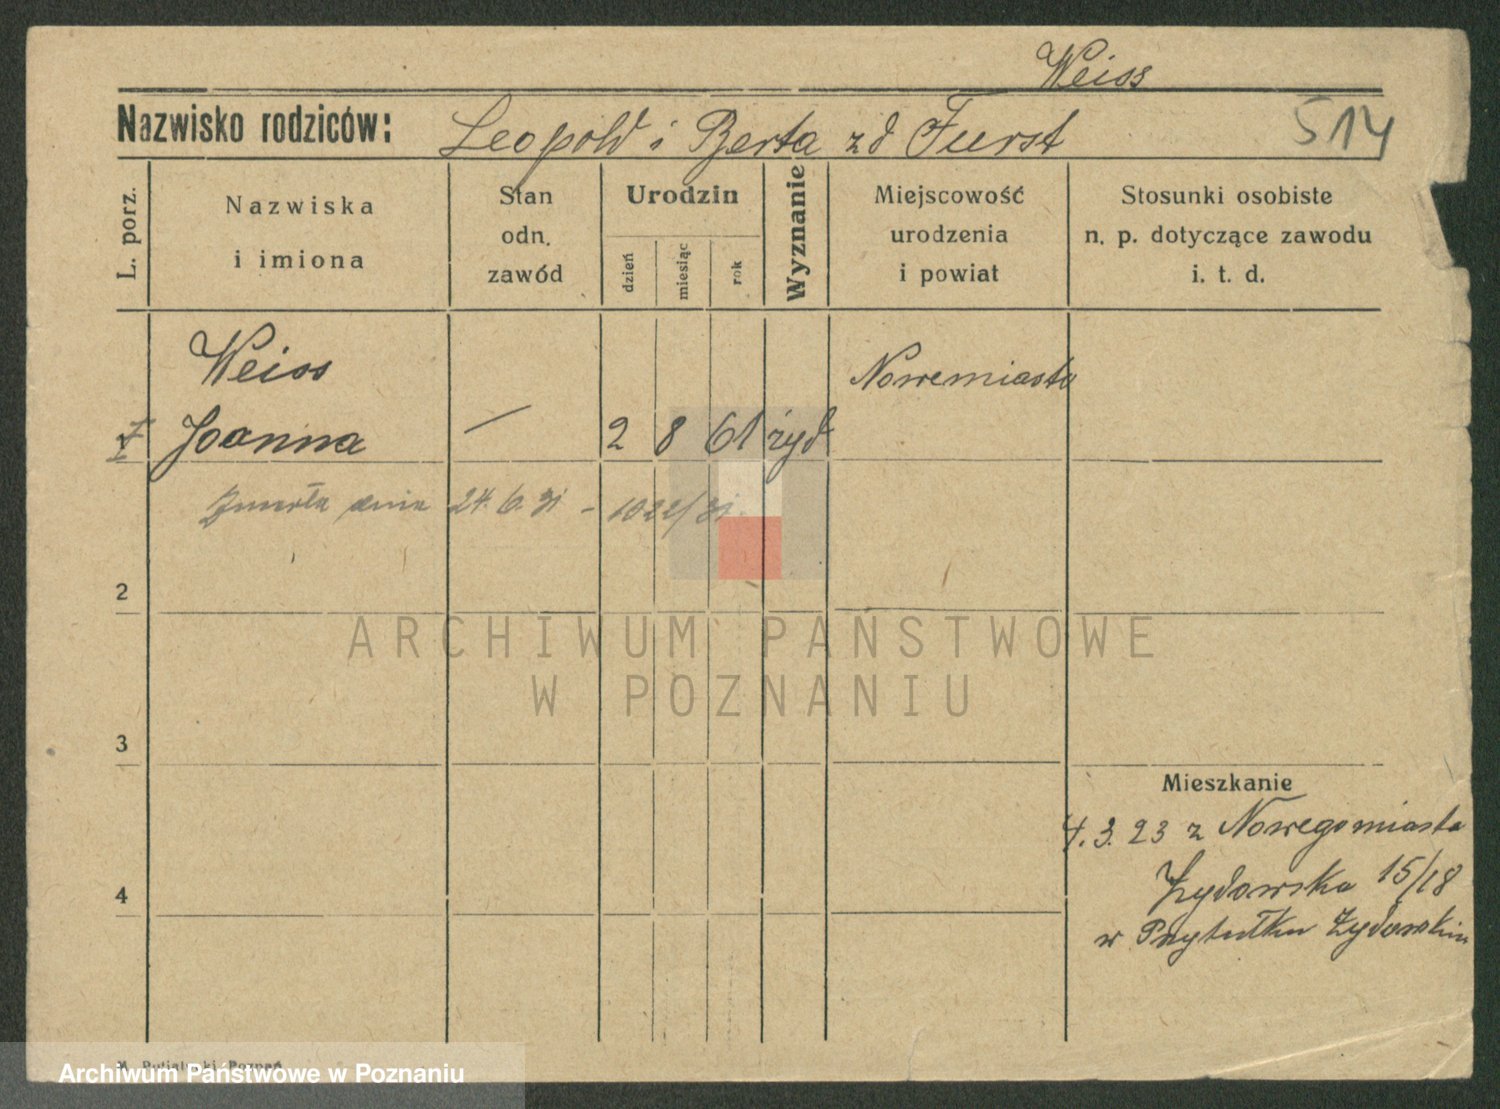 Weiss
Nazwisko rodziców: Leopold i Berta zd Fürst
514
L. porz.
Nazwiska
i imiona
Stan
odn.
zawód
Urodzin
dzień
miesiąc
rok
Wyznanie
Miejscowość
urodzenia
i powiat
Stosunki osobiste
n. p. dotyczące zawodu
i. t. d.
Weiss
Nowemiasto
1 Joanna — 2 8 61 żyd
Zmarła dnia 24. 6. 31 - 1022/31.
2
ARCHIWUM PAŃSTWOWE
W POZNANIU
3
Mieszkanie
4. 3. 23 z Nowegomiasta
Żydowska 15/18
4
w Przytułku Żydowskim
Poznań
Archiwum Państwowe w Poznaniu